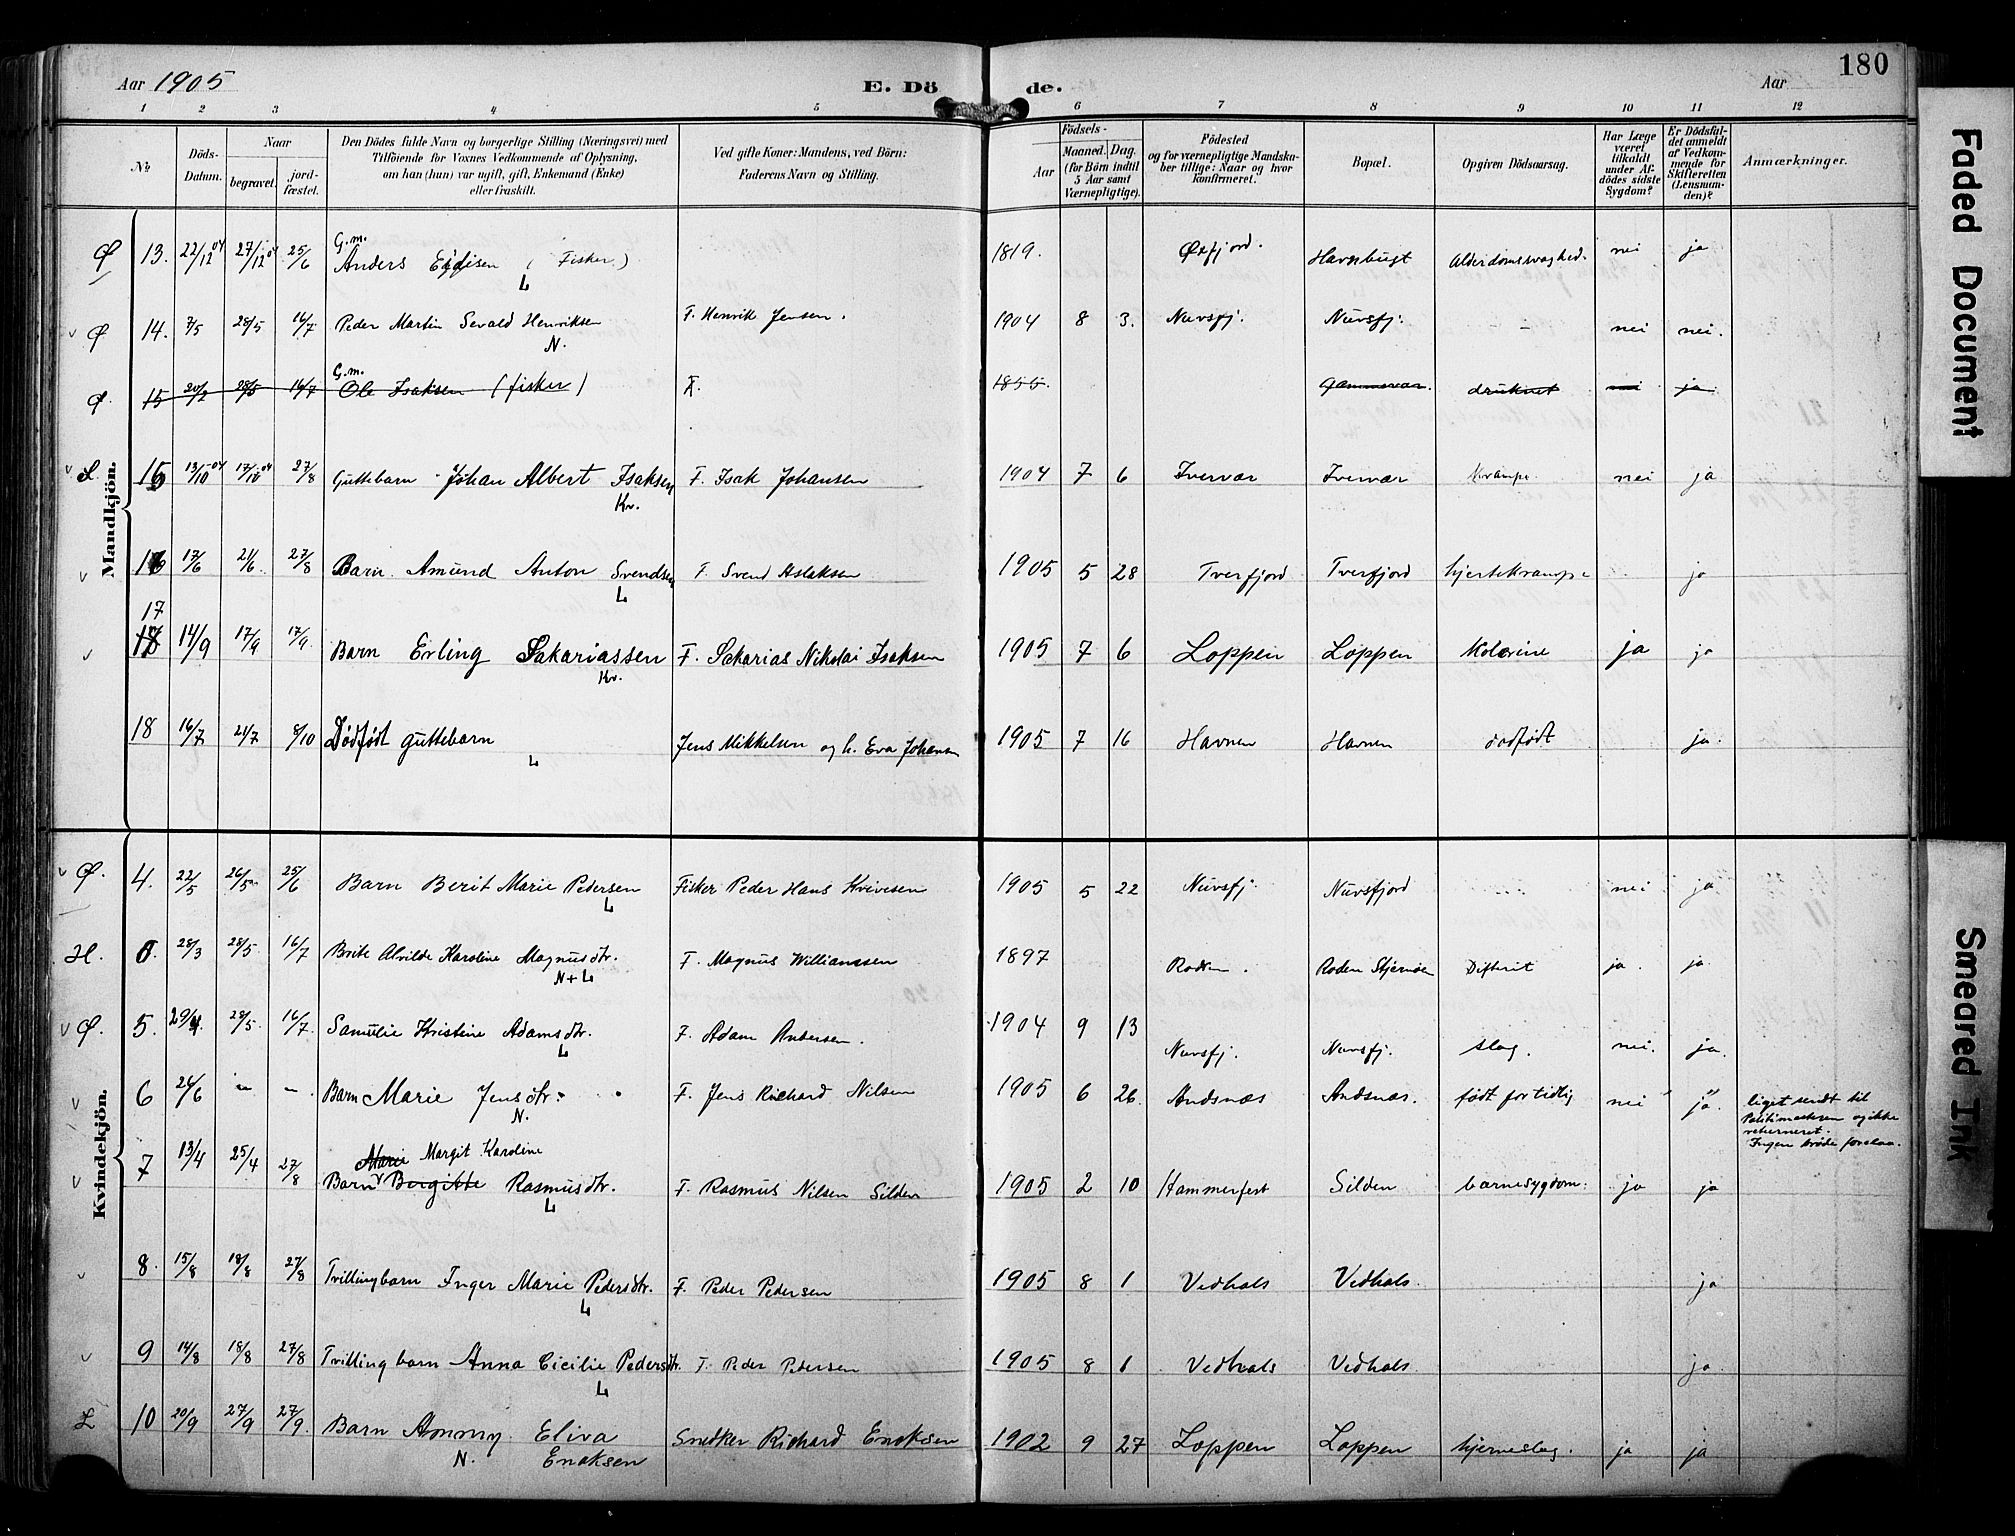 Aar 1905 E. Dö de. Aar 180
1 2 3 4 5 6 7 8 9 10 11 12
No.
Döds-Datum.
Naar
begravet.
jord-fæstet.
Den Dödes fulde Navn og borgerlige Stilling (Næringsvei) med
Tilföiende for Voxnes Vedkommende af Oplysning,
om han (hun) var ugift, gift, Enkemand (Enke)
eller fraskilt.
Ved gifte Koner: Mandens, ved Börn:
Faderens Navn og Stilling.
Födsels-
Aar
Maaned. Dag.
(for Börn indtil
5 Aar samt
Værnepligtige).
Födested
og for værnepligtige Mandska-
ber tillige: Naar og hvor
konfirmeret.
Bopæl.
Opgiven Dödsaarsag.
Har Læge
været
tilkaldt
under Af-
dödes sidste
Sygdom?
Er Dödsfal-
det anmeldt
af Vedkom-
mende for
Skifteretten
(Lensman-
den)?
Anmærkninger.
Mandkjön.
G.m.
Ø 13. 22/12 04 27/12 04 25/6 Anders (Fisker) 1819. Øxfjord. Havnbugt Alderdomssvaghed. nei ja
L
Ø 14. 7/5 28/5 16/7 Peder Martin Sevald Henriksen F. Henrik Jensen. 1904 8 3. Nuvsfj. Nuvsfj. - nei nei.
N.
G.m.
Ø. 15 20/2 28/5 16/7 Ole Isaksen (fisker) F. 1855 Gammevær. druknet nei ja
L. 15 13/10 04 17/10 04 27/8 Guttebarn Johan Albert Isaksen F. Isak Johansen 1904 7 6 Ivervær Ivervær Krampe nei ja
Kr.
16 17/6 21/6 27/8 Barn Amund Anton Svendsen F. Svend Aslaksen 1905 5 28 Tverfjord Tverfjord hjertekrampe ja
L
17
18 14/9 17/9 17/9 Barn Erling Sakariassen F. Sakarias Nikolai Isaksen 1905 7 6 Loppen Loppen Kolerine ja ja
Kr.
18 16/7 24/7 8/10 Dødfødt guttebarn Jens Mikkelsen og h. Eva Johansen 1905 7 16 Havnen Havnen dødfødt ja.
L
Kvindekjön.
Ø. 4. 22/5 26/5 25/6 Barn Berit Marie Pedersen Fisker Peder Hans Kvivesen 1905 5 22 Nuvsfj. Nuvsfjord nei ja
L
H. 28/3 28/5 16/7 Brite Alvilde Karoline Magnusdtr. F. Magnus Willianssen 1897 Roden. Roden Stjernøen Difterit ja. ja.
N+L
Ø. 5. 29/4. 28/5. 16/7 Samulie Kristine Adamsdtr. F. Adam Andersen. 1904 9 13 Nuvsfj. Nuvsfj. slag. nei. ja.
L
6 24/6 - - Barn Marie Jensdtr. F. Jens Richard Nilsen 1905 6 26 Andsnæs Andsnæs. født for tidlig nei ja. liget sendt til
N.
Politimesteren og ikke
returneret.
Ingen brøde forelaa.
Marie Margit Karoline
7 13/4 25/4 27/8 Barn Birgitte Rasmusdtr. F. Rasmus Nilsen Silden 1905 2 10 Hammerfest Silden barnesygdom. ja ja
L
8. 15/8 18/8 27/8 Tvillingbarn Inger Marie Pedersdtr. F. Peder Pedersen 1905 8 1 Vedhals Vedhals. ja
L
9 14/8 18/8 27/8 Tvillingbarn Anna Cicilie Pedersdtr. F. Peder Pedersen 1905 8 1 Vedhals Vedhals ja
L
L 10 20/9 27/9 27/9 Barn Ammy Eliva Snedker Richard Enoksen 1902 9 27 Loppen Loppen hjerneslag. ja ja
N. Enoksen
Faded Document
Smeared Ink